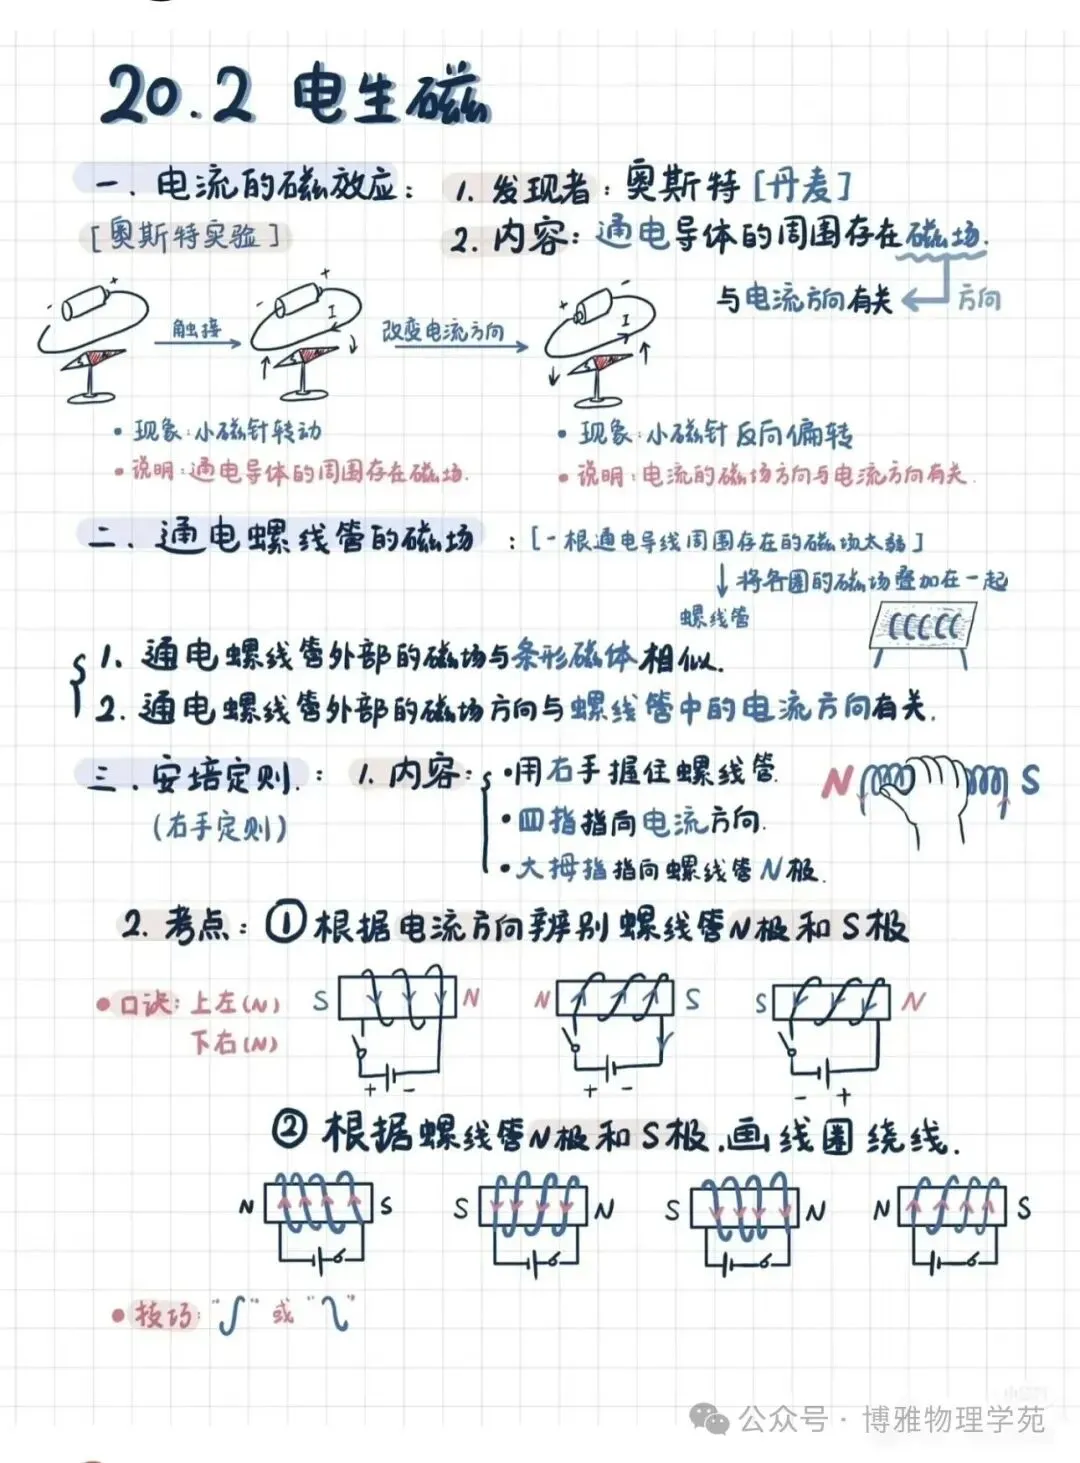 20.2 电生磁
一. 电流的磁效应: 1. 发现者: 奥斯特 [丹麦]
[奥斯特实验] 2. 内容: 通电导体的周围存在磁场.
与电流方向有关 方向
- + - + I + - I
触接 改变电流方向
• 现象: 小磁针转动
• 说明: 通电导体的周围存在磁场.
• 现象: 小磁针反向偏转
• 说明: 电流的磁场方向与电流方向有关.
二. 通电螺线管的磁场 : [一根通电导线周围存在的磁场太弱]
将各圈的磁场叠加在一起
螺线管
1. 通电螺线管外部的磁场与条形磁体相似.
2. 通电螺线管外部的磁场方向与螺线管中的电流方向有关.
三. 安培定则. : 1. 内容: • 用右手握住螺线管.
(右手定则) • 四指指向电流方向.
• 大拇指指向螺线管N极.
N S
2. 考点: ① 根据电流方向辨别螺线管N极和S极
• 口诀: 上左(N)
下右(N)
S N N S S N
+ - + - - +
② 根据螺线管N极和S极.画线圈绕线.
N S S N S N N S
• 技巧: "ʃ" 或 "ʅ"
公众号 · 博雅物理学苑